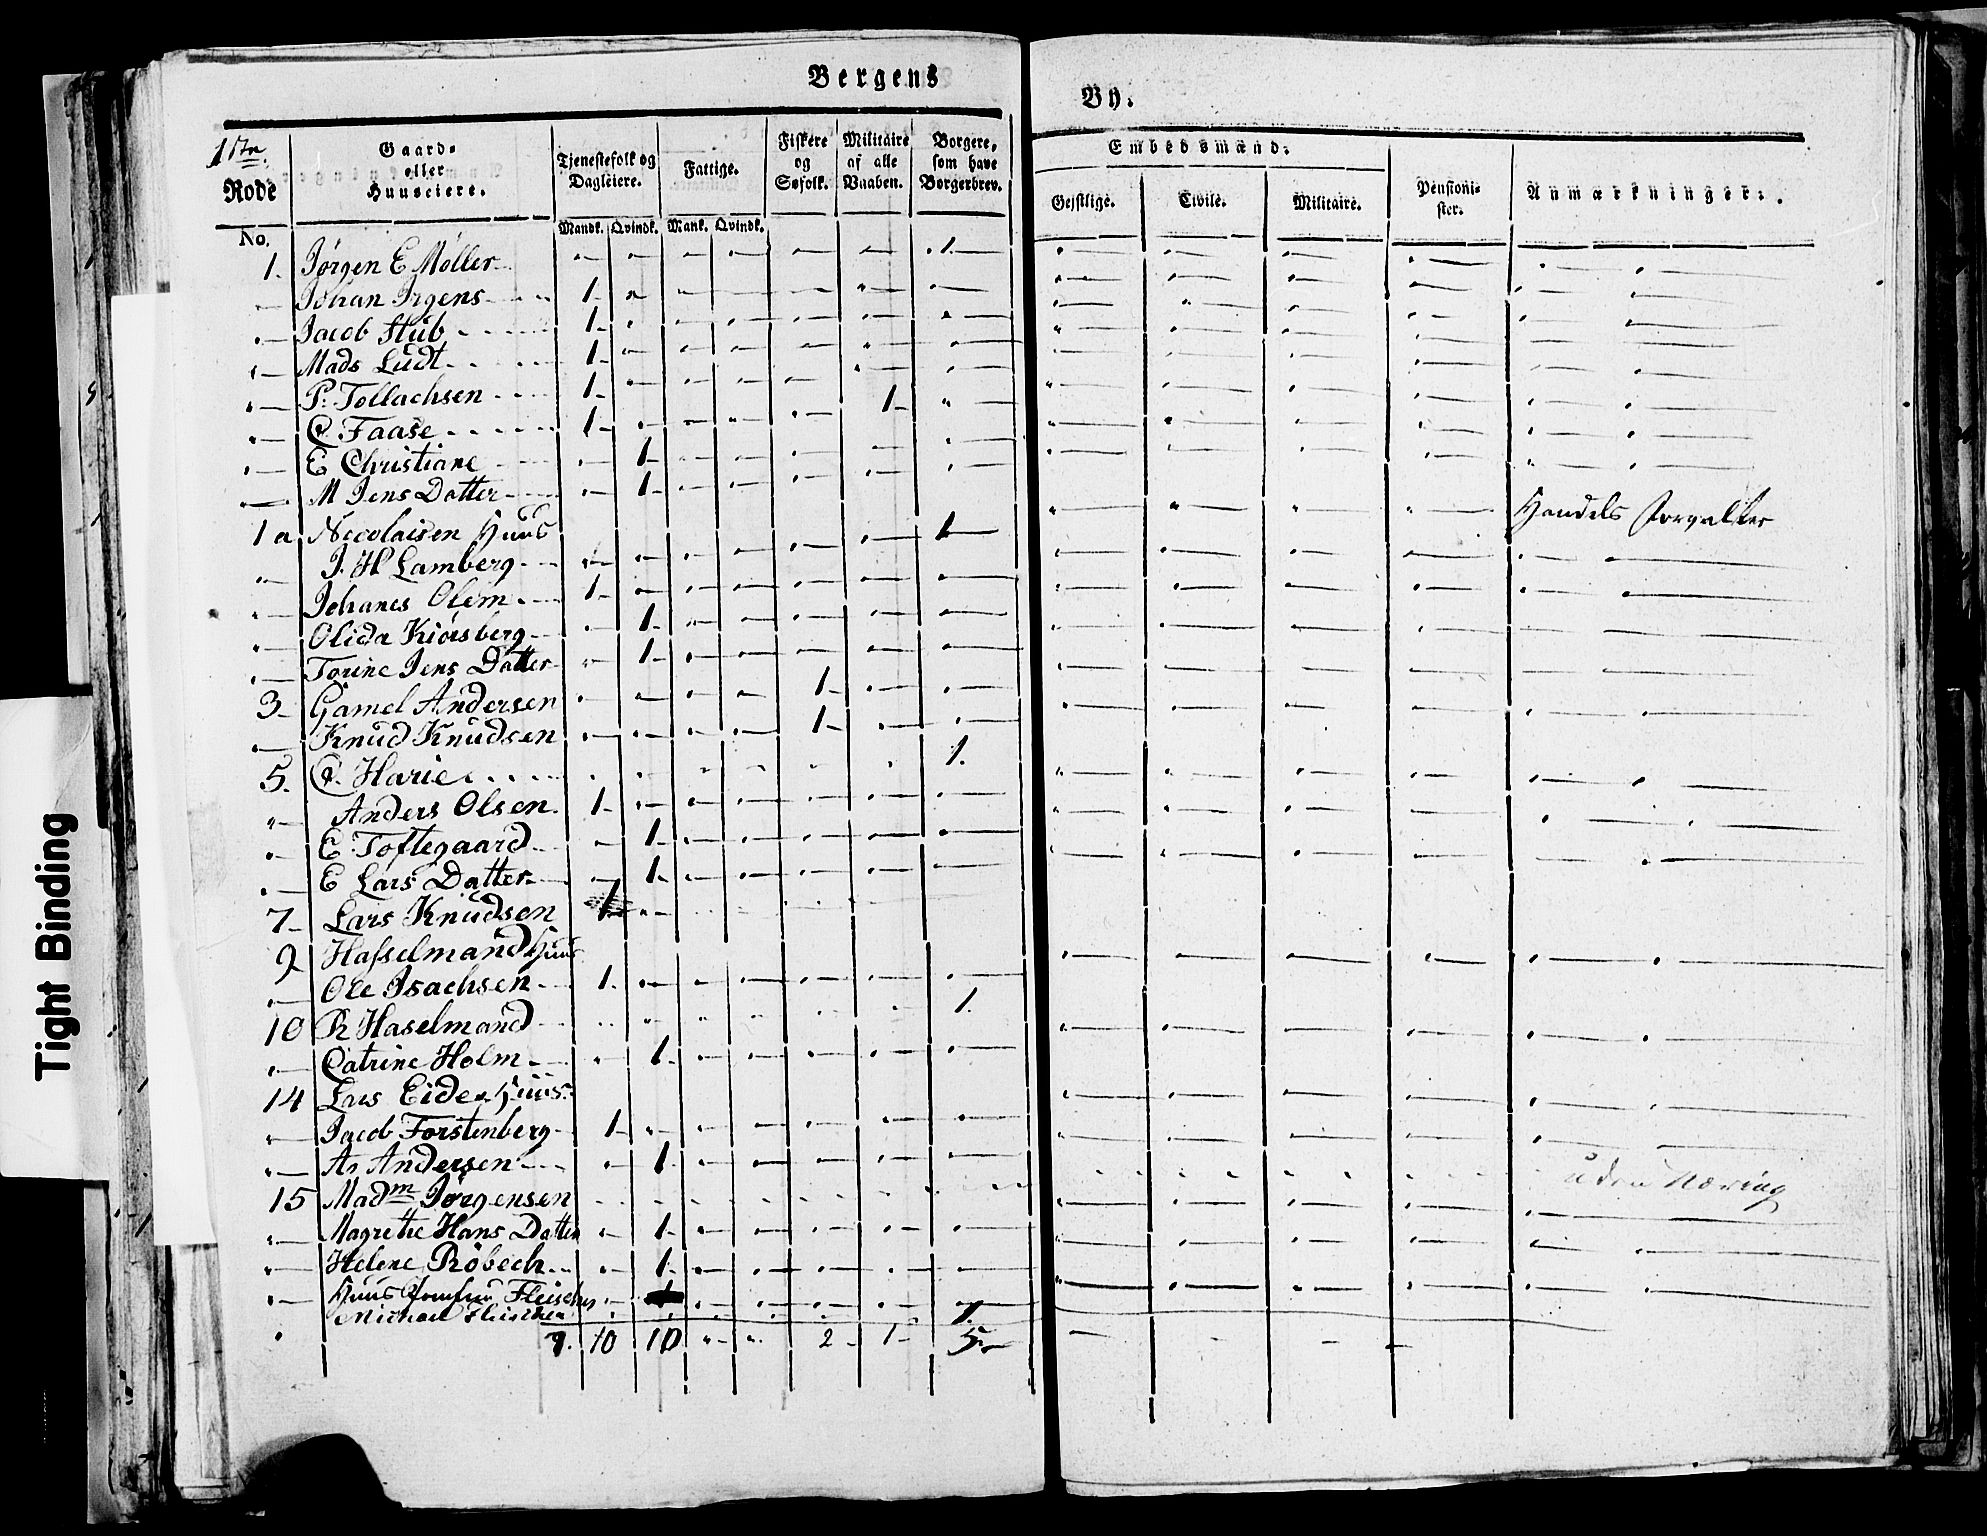 Bergens By.
1ste Rode No.
Gaard- eller Huuseiere.
Tjenestefolk og Dagleiere.
Mandk. Qvindk.
Fattige.
Mank. Qvindk.
Fiskere og Søfolk.
Militaire af alle Vaaben.
Borgere, som have Borgerbrev.
Embedsmænd:
Gejstlige.
Civile.
Militaire.
Pensionister.
Anmærkninger.
1. Jørgen E Møller - - - - - - 1
Johan Irgens 1 - - - - - -
Jacob Stub 1 - - - - - -
Mads Ludt 1 - - - - - -
P. Tollachsen 1 - - - - - -
C. Faase 1 - - - - 1 -
E Christiane - 1 - - - - -
M Jens Datter - 1 - - - - -
1 a Nicolaisen Huus
J. H Lamberg - - - - - - 1 Handels Forvalter
Johanes Olem 1 - - - - - -
Olida Kiörsberg - 1 - - - - -
Torine Jens Datter - 1 - - - - -
3 Gamel Andersen - - - - 1 - -
Knud Knudsen - - - - 1 - -
5. C. Harie - - - - - - 1.
Anders Olsen 1 - - - - - -
E. Toftegaard - 1 - - - - -
E Lars Datter - 1 - - - - -
7 Lars Knudsen 1 - - - - - -
9 Hasselmand Huus
Ole Isachsen 1 - - - - - -
10 R Haselmand - - - - - - 1.
Catrine Holm - 1 - - - - -
14 Lars Eides Huus
Jacob Forstenberg 1 - - - - - -
A. Andersen - 1 - - - - -
15 Madm Jørgensen - - - - - - - uden Næring
Magrethe Hans Datter - 1 - - - - -
Helene Röbech - 1 - - - - -
Huus Jomfru Fleischer
Michael Fleischer 1.
10 10 - - 2 1 5
Tight Binding